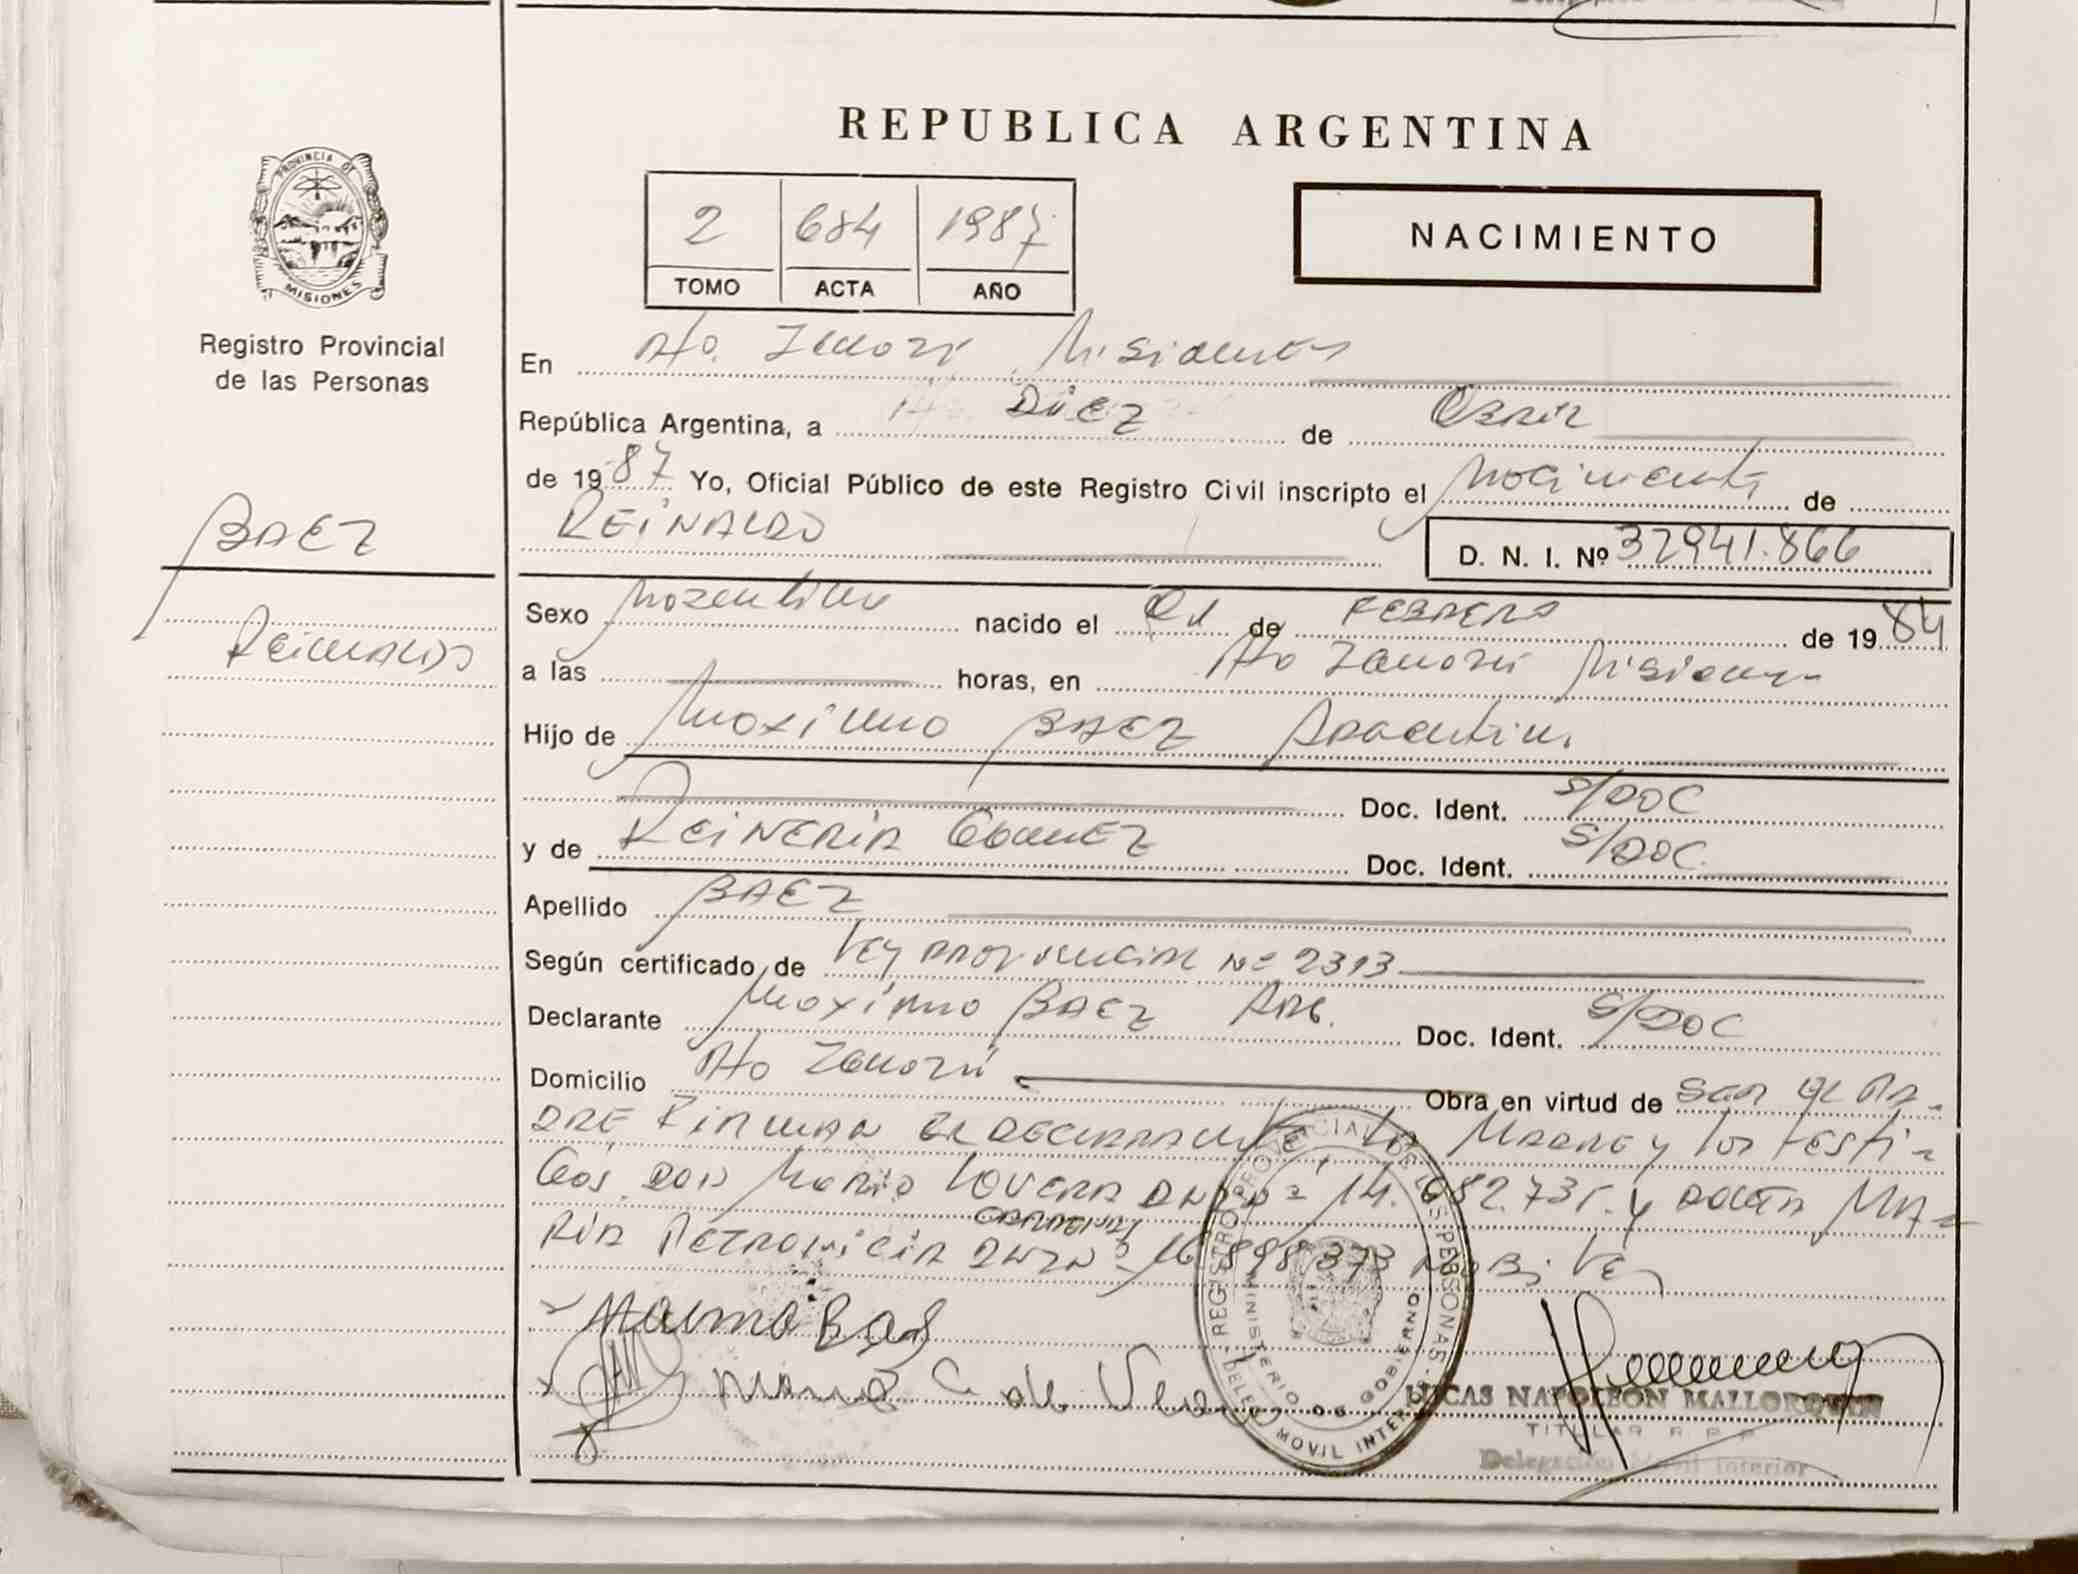 REPUBLICA ARGENTINA
PROVINCIA DE
MISIONES
Registro Provincial
de las Personas
2 684 1987
TOMO ACTA AÑO
NACIMIENTO
En Misiones
República Argentina, a Diez de Abril
de 1987 Yo, Oficial Público de este Registro Civil inscripto el Nacimiento de
REINALDO
D. N. I. Nº 32941.866
BAEZ
Reinaldo
Sexo Masculino nacido el de FEBRERO de 1984
a las horas, en Misiones
Hijo de Maximo BAEZ Argentino
Doc. Ident. S/DOC
y de REINERIA GOMEZ Doc. Ident. S/DOC
Apellido BAEZ
Según certificado de LEY PROVINCIAL Nº 2313
Declarante Maximo BAEZ ARG. Doc. Ident. S/DOC
Domicilio Obra en virtud de SER EL PA-
DRE FIRMAN EL DECLARANTE LA MADRE y los testi-
GOS DON Mario LOVERA DNI Nº 14. y DOÑA MA-
RIA DNI Nº 16.898.373
REGISTRO PROVINCIAL DE LAS PERSONAS
MINISTERIO DE GOBIERNO
MOVIL INTERIOR
Maximo Baez
Maria C. de
LUCAS NAPOLEON MALLORQUIN
TITULAR R P P
Delegación Movil Interior